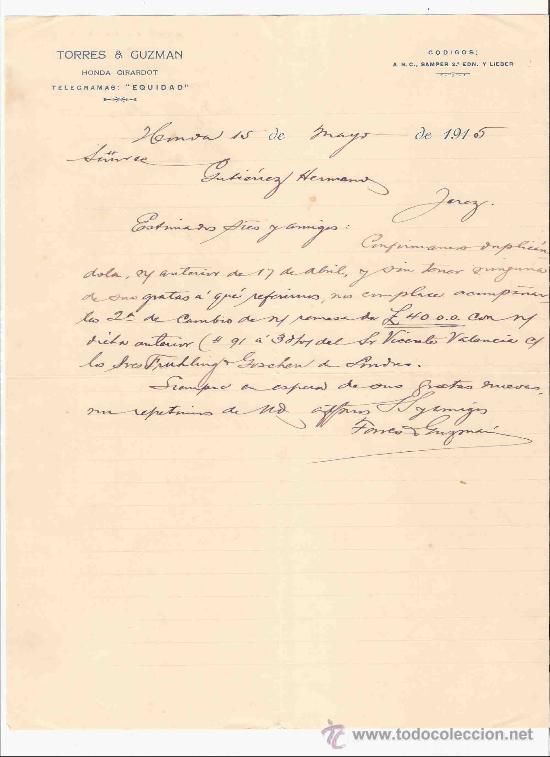 TORRES & GUZMAN
HONDA GIRARDOT
TELEGRAMAS: "EQUIDAD"
CODIGOS:
A B.C., SAMPER 2ª EDN. Y LIEBER
Honda 15 de Mayo de 1915
Señores
Gutiérrez Hermanos
Jerez.
Estimados Sres y amigos:
Confirmamos duplicán
dola, n/ anterior de 17 de abril, y sin tener ninguna
de sus gratas á que referirnos, nos complace acompañar
les 2ª de cambio de n/ remesa de £ 40.0.0. con n/
dicha anterior (# 91 á 3 d/v) del Sr Vicente Valencia c/
los Sres Frühling & Goschen de Londres.
Siempre en espera de sus gratas nuevas,
nos repetimos de Ud affmos SS y amigos
Torres & Guzmán
www.todocoleccion.net